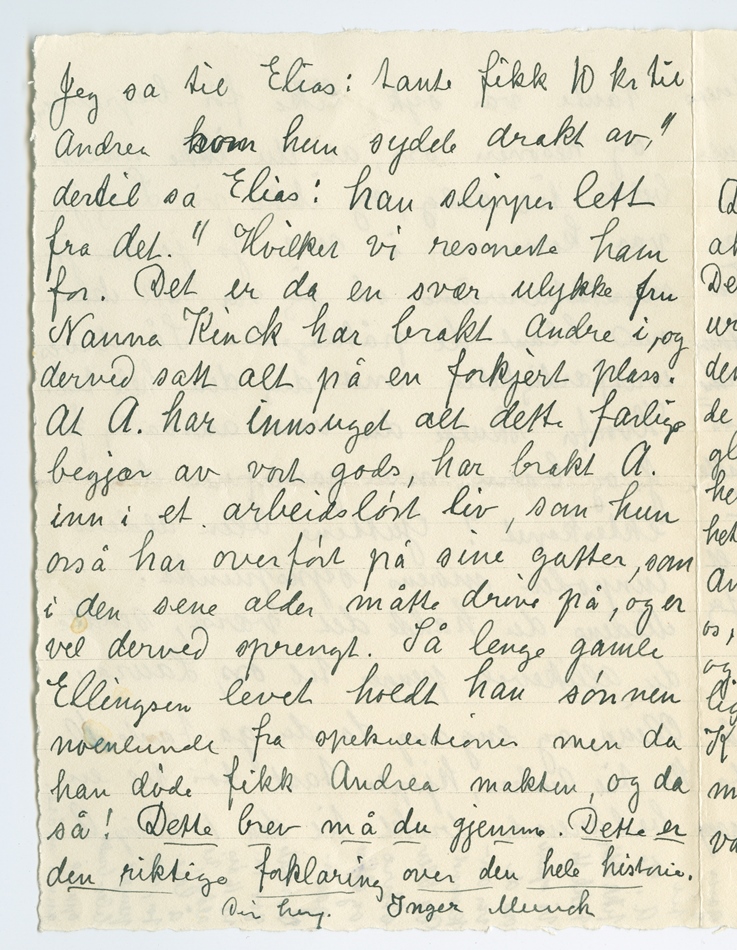 Jeg sa til Elias: tante fikk 10 kr til
Andrea som hun sydde drakt av,"
dertil sa Elias: han slipper lett
fra det." Hvilket vi resonerte ham
for. Det er da en svær ulykke fru
Nanna Kinck har brakt Andre i, og
derved satt alt på en forkjert plass.
At A. har innsuget alt dette farlige
begjær av vort gods, har brakt A.
inn i et arbeidsløst liv, som hun
osså har overført på sine gutter, som
i den sene alder måtte drive på, og er
vel derved sprengt. Så lenge gamle
Ellingsen levet holdt han sønnen
noenlunde fra spekulationer men da
han døde fikk Andrea makten, og da
så! Dette brev må du gjemme. Dette er
den riktige forklaring over den hele historie.
Din heng. Inger Munch
D
at
De
ur
den
de
gl
he
het
An
os,
og
lig
K
m
va